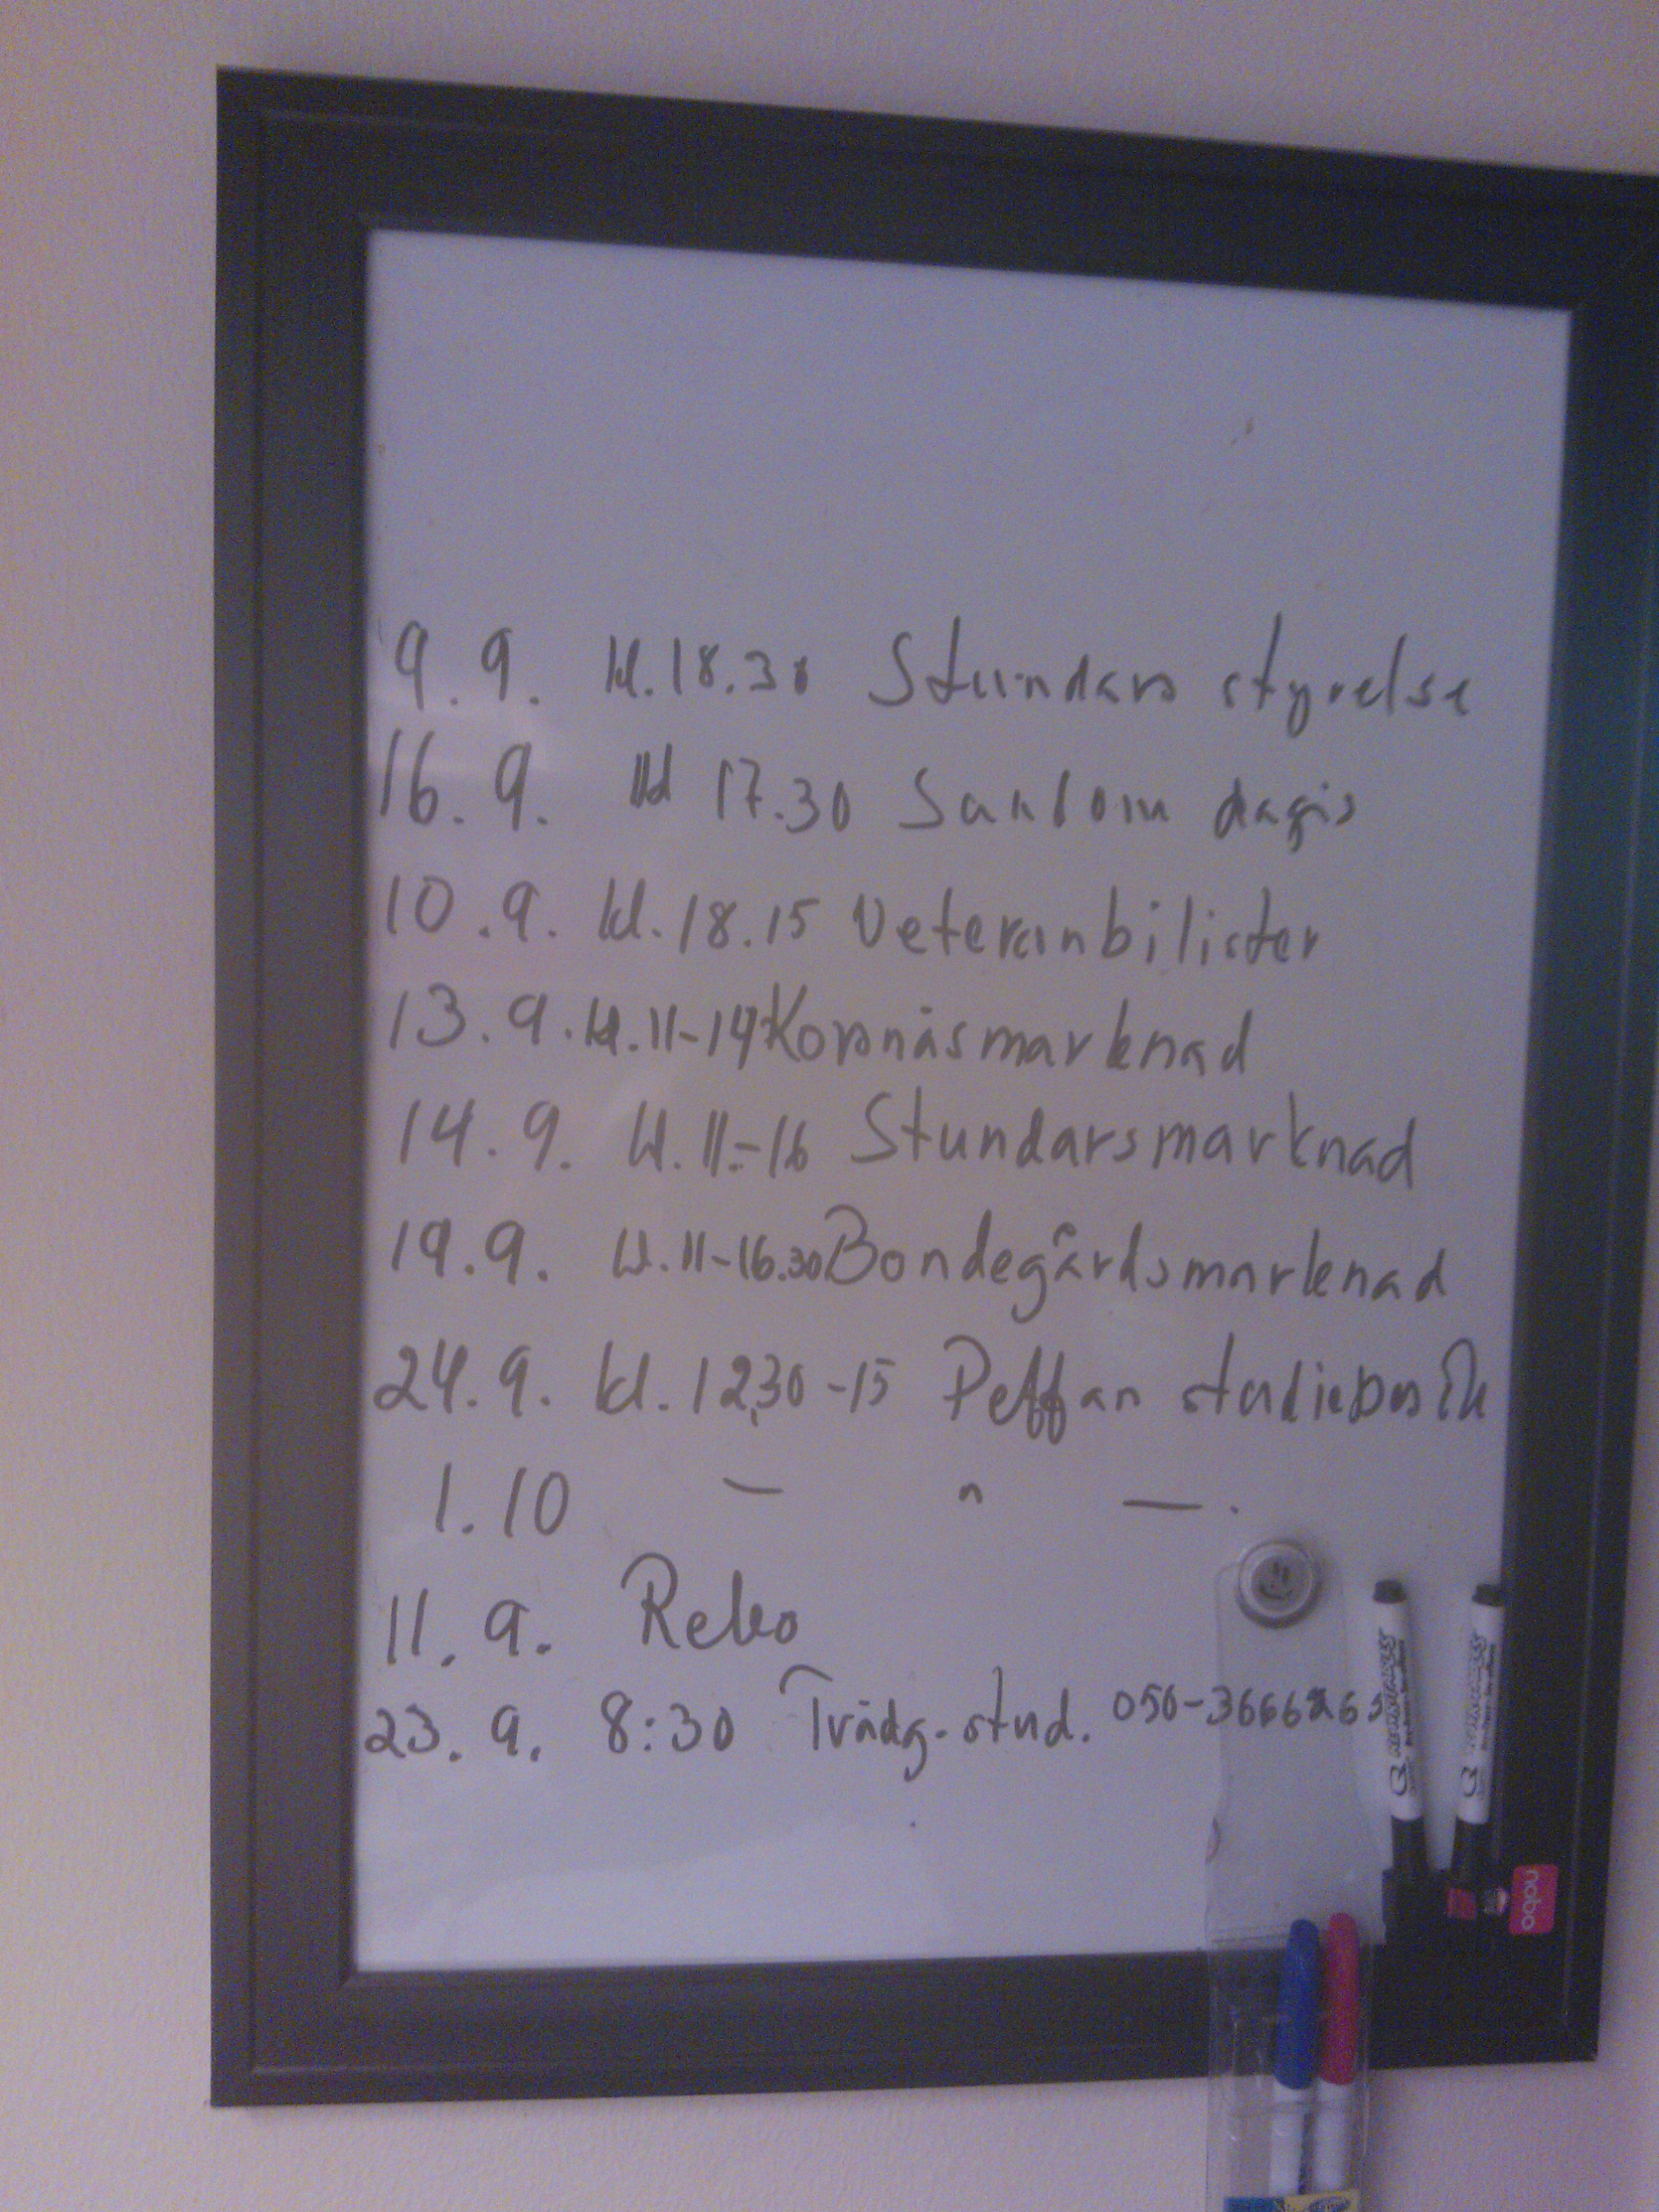 9.9. kl.18.30 Stundars styrelse
16.9. kl 17.30 dagis
10.9. kl.18.15 Veteranbilister
13.9. kl.11-14 Korsnäsmarknad
14.9. kl.11-16 Stundarsmarknad
19.9. kl.11-16.30 Bondegårdsmarknad
24.9. kl.12,30-15 Peffan
1.10 — " —.
11.9. Reko
23.9. 8:30 Trädg.stud.
nobo